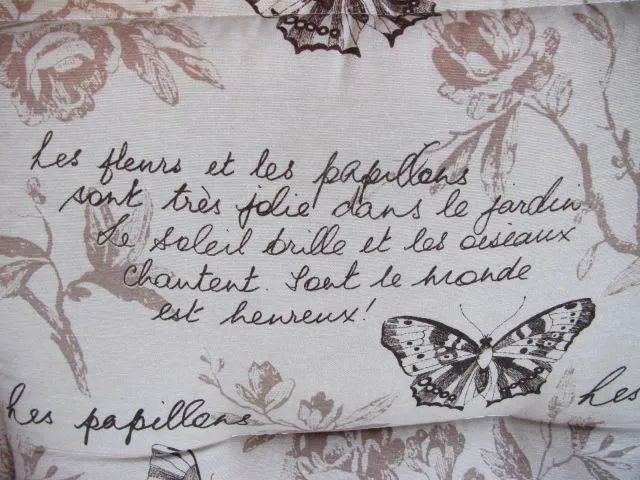 Les fleurs et les papillons
sont très jolie dans le jardin
Le soleil brille et les oiseaux
chantent. Tout le monde
est heureux!
Les papillons
Les